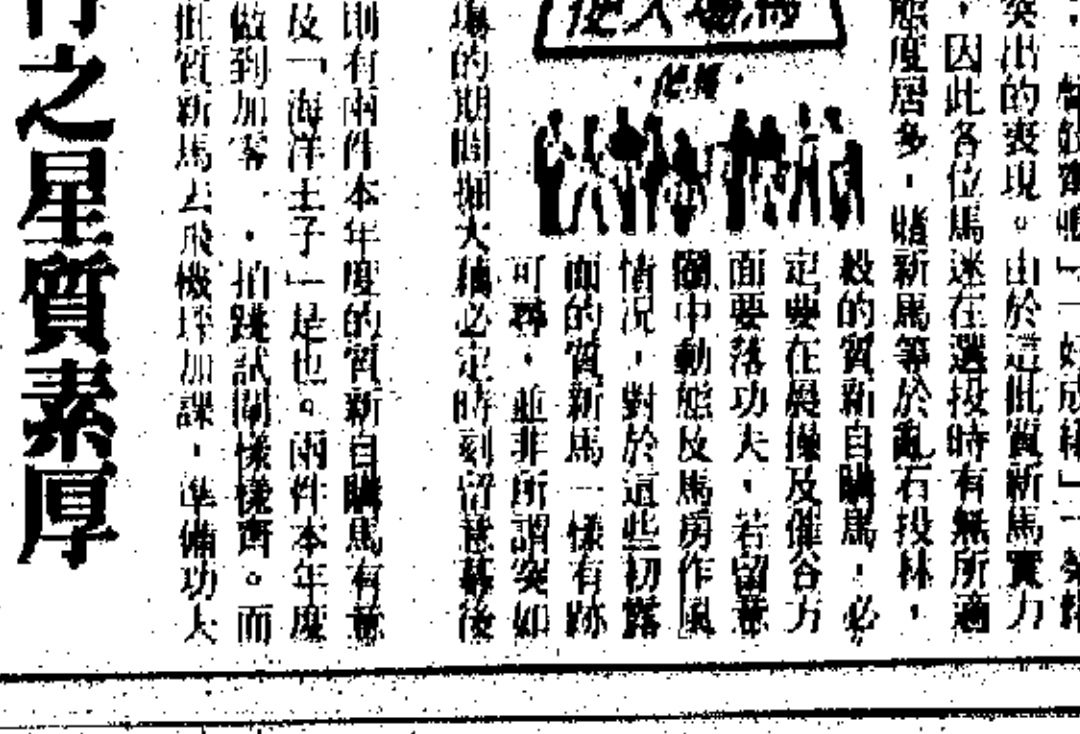 好成績
突出的表現。由於這批質新馬實力
,因此各位馬迷在選投時有無所適
態度居多,賭新馬等於亂石投林,
殺的質新自購馬,必
定要在晨操及催谷方
面要落功夫,若留意
圈中動態及馬房作風
情況,對於這些初露
面的質新馬一樣有跡
可尋,並非所謂突如
的期間掘大必定時刻留意幕後
則有兩件本年度的質新自購馬有意
及「海洋王子」是也。兩件本年度
做到加零,拍踐試閘樣樣齊。而
批質新馬去飛機坪加課,準備功夫
馬場入
之星質素厚